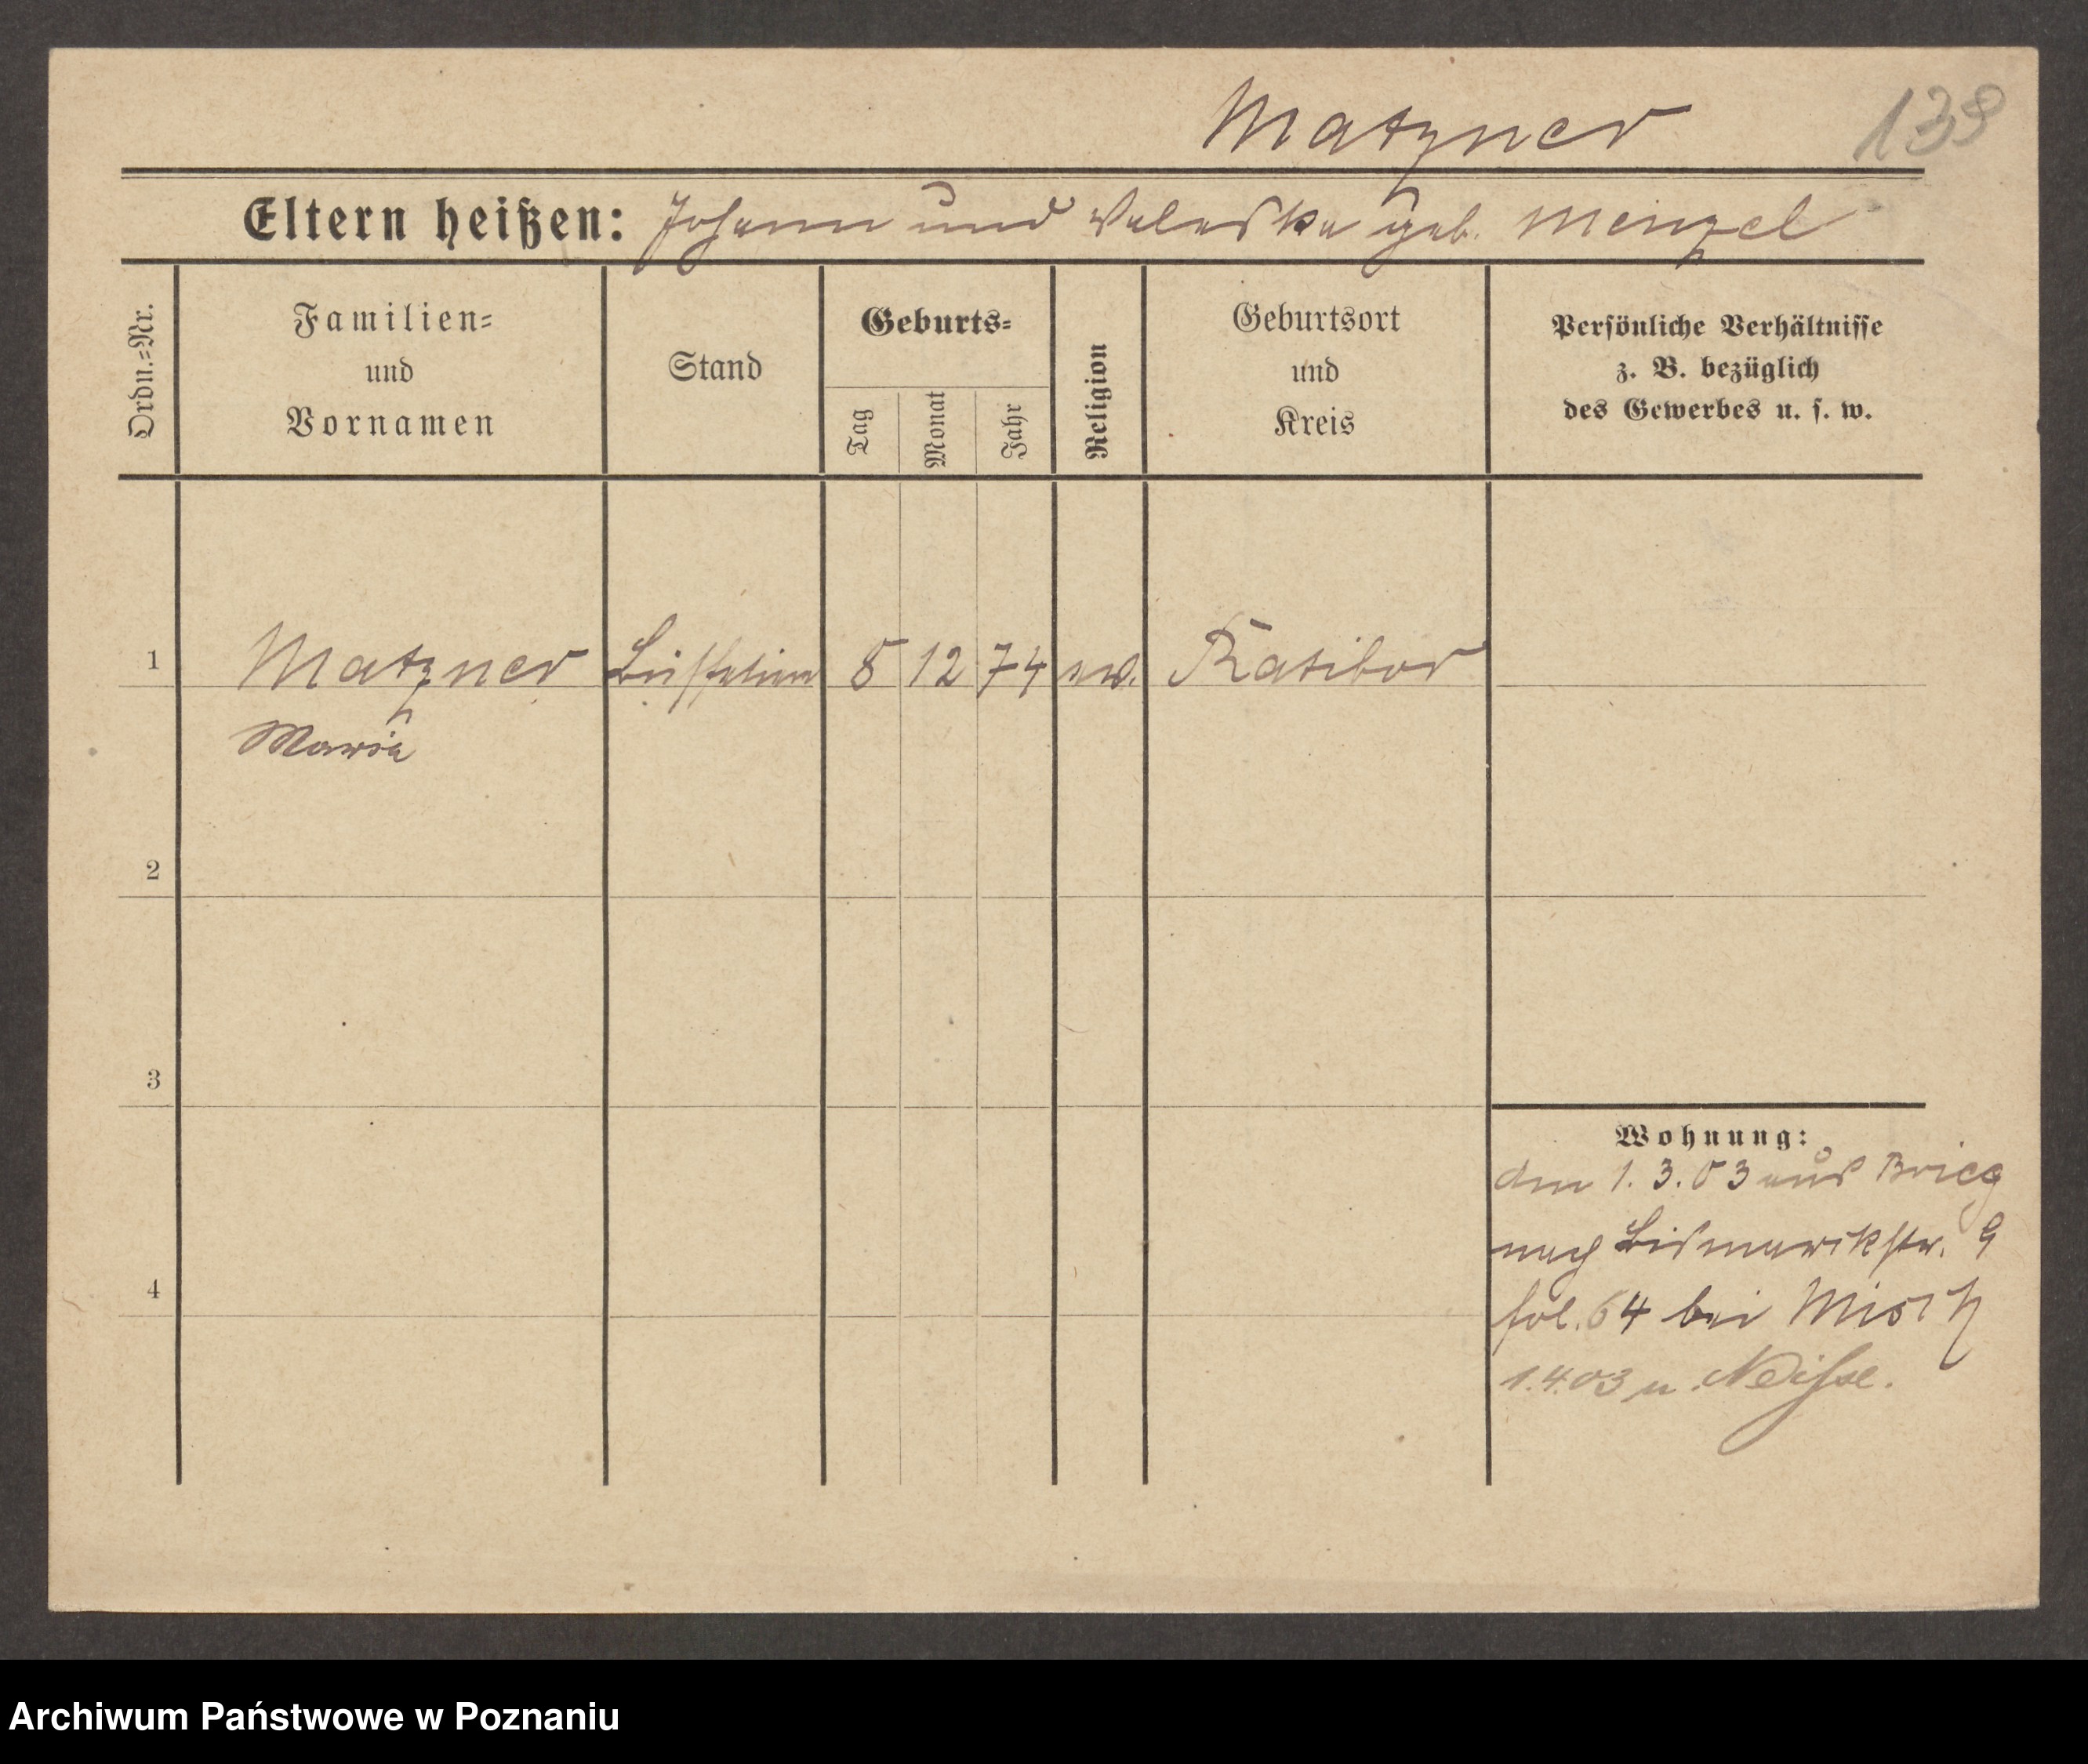 Matzner 139
Eltern heißen: Johann und Valeska geb. Menzel
Ordn.=Nr.
Familien=
und
Vornamen
Stand
Geburts=
Tag
Monat
Jahr
Religion
Geburtsort
und
Kreis
Persönliche Verhältnisse
z. B. bezüglich
des Gewerbes u. s. w.
1 Matzner 8 12 74 ev. Ratibor
Maria
2
3
4
Wohnung:
den 1.3.03 aus Brieg
nach Bismarckstr. 9
fol. 64 bei Misch
1.4.03 n. Neisse.
Archiwum Państwowe w Poznaniu